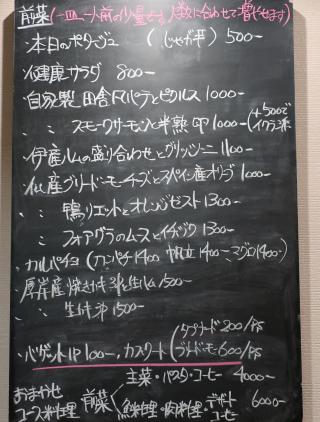 前菜(一皿一人前の少量です。人数に合わせて増やせます)
・本日のポタージュ (じゃが芋) 500-
・健康サラダ 800-
・自家製 田舎風パテとピクルス 1000-
・〃 スモークサーモンと半熟卵 1000-(+500でイクラ添え)
・伊産ハムの盛り合わせとグリッシーニ 1100-
・仏産ブリ・ド・モーチーズとスペイン産オリーブ 1000-
・〃 鴨リエットとオレンジゼスト 1300-
・〃 フォアグラのムースとイチジク 1300-
・カルパチョ (カンパチ1400 帆立1400- マグロ1400)
・厚岸産 焼きカキ 1500-
・〃 生カキ 1500-
・バゲット1P 100-, カスクート(タプナード200/PS
ブリ・ド・モー600/PS
おまかせ
コース料理
前菜
主菜・パスタ・コーヒー 4000-
魚料理・肉料理・デザート コーヒー 6000-